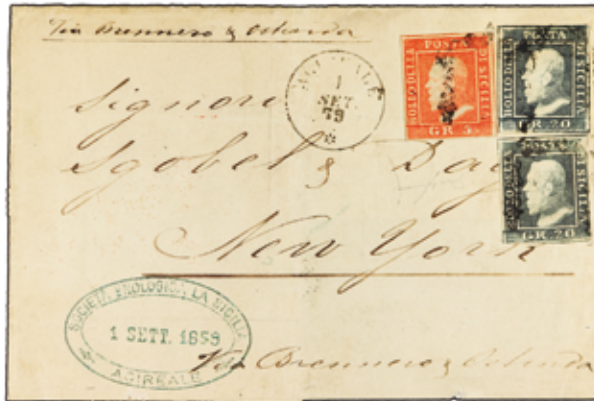 Via Brennero & Ostenda
ACIREALE
1
SET.
79
BOLLO DELLA POSTA DI SICILIA
GR. 5.
BOLLO DELLA POSTA DI SICILIA
GR. 20
BOLLO DELLA POSTA DI SICILIA
GR. 20
Signore
Sgobel & Day
New York
SOCIETÀ ENOLOGICA LA SICILIA
1 SETT. 1859
ACIREALE
Via Brennero & Ostenda